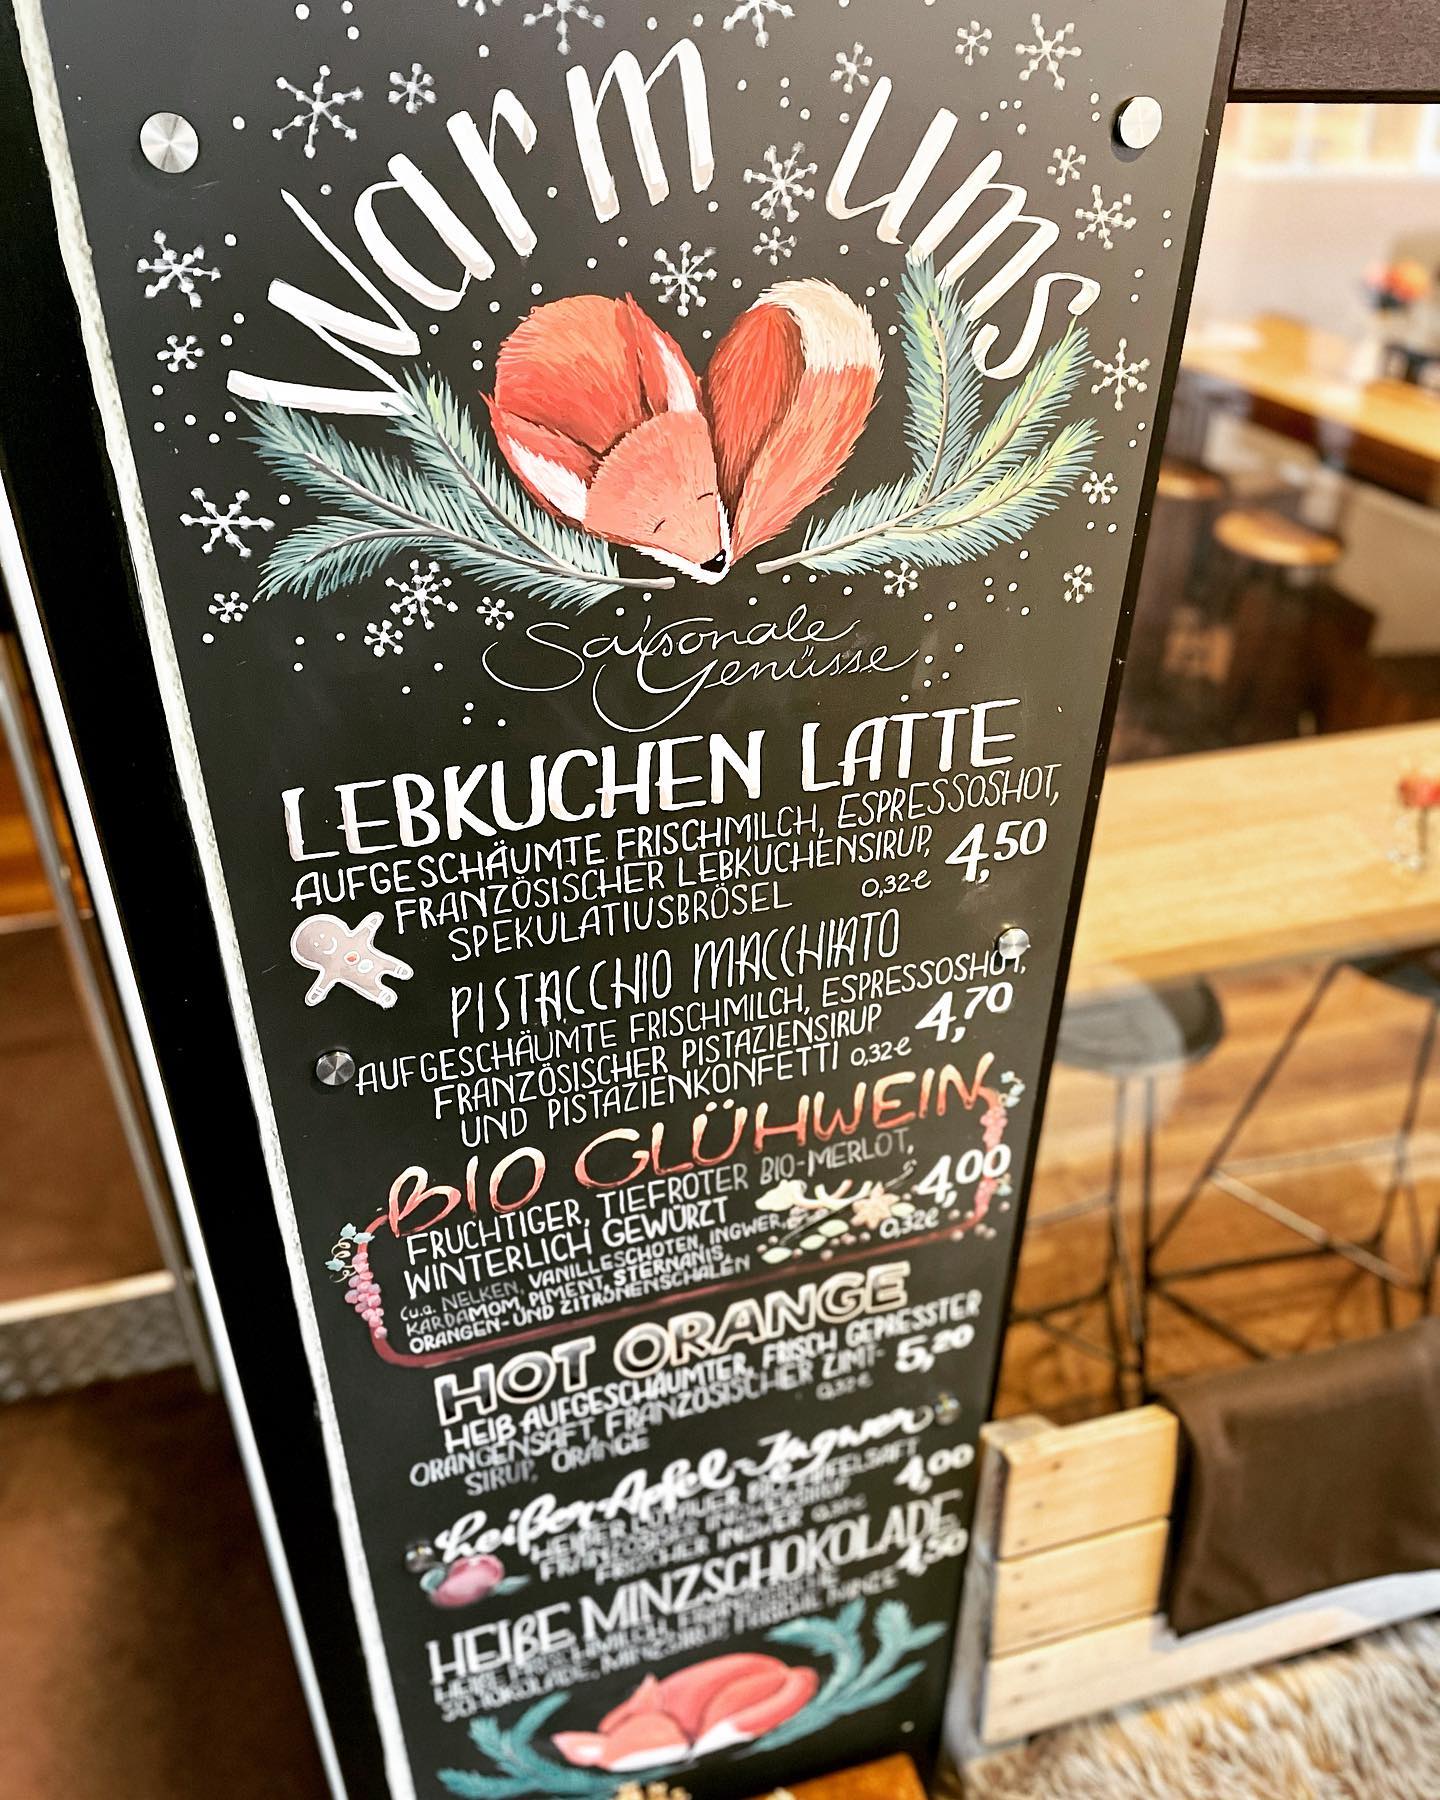 Warm ums
Saisonale
Genüsse
LEBKUCHEN LATTE
AUFGESCHÄUMTE FRISCHMILCH, ESPRESSOSHOT,
FRANZÖSISCHER LEBKUCHENSIRUP,
SPEKULATIUSBRÖSEL 0,32€ 4,50
PISTACCHIO MACCHIATO
AUFGESCHÄUMTE FRISCHMILCH, ESPRESSOSHOT,
FRANZÖSISCHER PISTAZIENSIRUP 4,70
UND PISTAZIENKONFETTI 0,32€
BIO GLÜHWEIN
FRUCHTIGER, TIEFROTER BIO-MERLOT,
WINTERLICH GEWÜRZT 4,00
(u.a. NELKEN, VANILLESCHOTEN, INGWER, 0,32€
KARDAMOM, PIMENT, STERNANIS,
ORANGEN- UND ZITRONENSCHALEN
HOT ORANGE
HEIß AUFGESCHÄUMTER, FRISCH GEPRESSTER
ORANGENSAFT, FRANZÖSISCHER ZIMT- 5,20
SIRUP, ORANGE 0,32€
heißer Apfel-Ingwer
FRISCHER INGWER 4,00
HEIßE MINZSCHOKOLADE
HEIßE FRISCHMILCH, 4,50
SCHOKOLADE, MINZSIRUP,